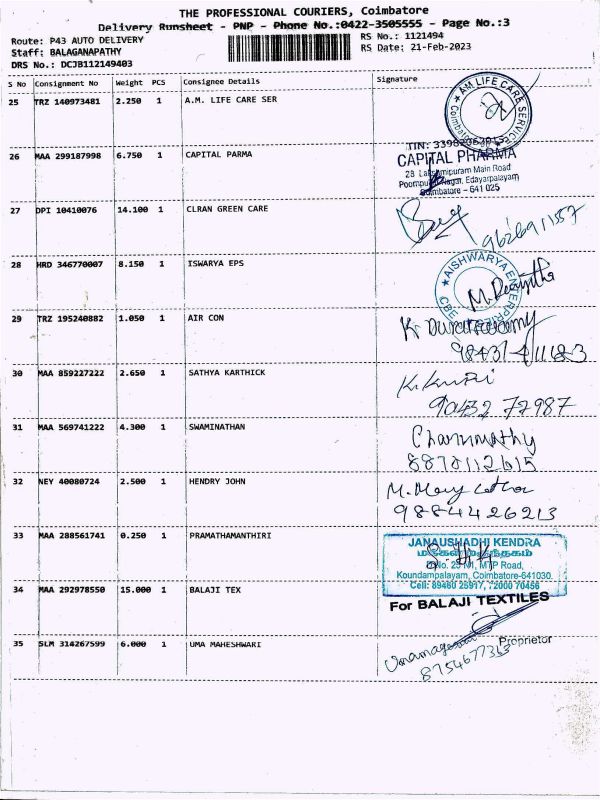 THE PROFESSIONAL COURIERS, Coimbatore
Delivery Runsheet - PNP - Phone No.:0422-3505555 - Page No.:3
Route: P43 AUTO DELIVERY
Staff: BALAGANAPATHY
DRS No.: DCJB112149403
RS No.: 1121494
RS Date: 21-Feb-2023
S No Consignment No Weight PCS Consignee Details Signature
25 TRZ 140973481 2.250 1 A.M. LIFE CARE SER
AM LIFE CARE SERVICE
Coimbatore
26 MAA 299187998 6.750 1 CAPITAL PARMA
CAPITAL PHARMA
Main Road
Nagar, Edayarpalayam
Coimbatore - 641 025
27 DPI 10410076 14.100 1 CLRAN GREEN CARE
9626911557
28 HRD 346770007 8.150 1 ISWARYA EPS
AISHWARYA ENTERPRISES
CBE
29 TRZ 195240882 1.050 1 AIR CON
30 MAA 859227222 2.650 1 SATHYA KARTHICK
90432 72987
31 MAA 569741222 4.300 1 SWAMINATHAN
8870112615
32 NEY 40080724 2.500 1 HENDRY JOHN
9884426213
33 MAA 288561741 0.250 1 PRAMATHAMANTHIRI
JANAUSHADHI KENDRA
மக்கள் மருந்தகம்
MTP Road,
Koundampalayam, Coimbatore-641030.
34 MAA 292978550 15.000 1 BALAJI TEX
For BALAJI TEXTILES
Proprietor
35 SLM 314267599 6.000 1 UMA MAHESHWARI
8754677363